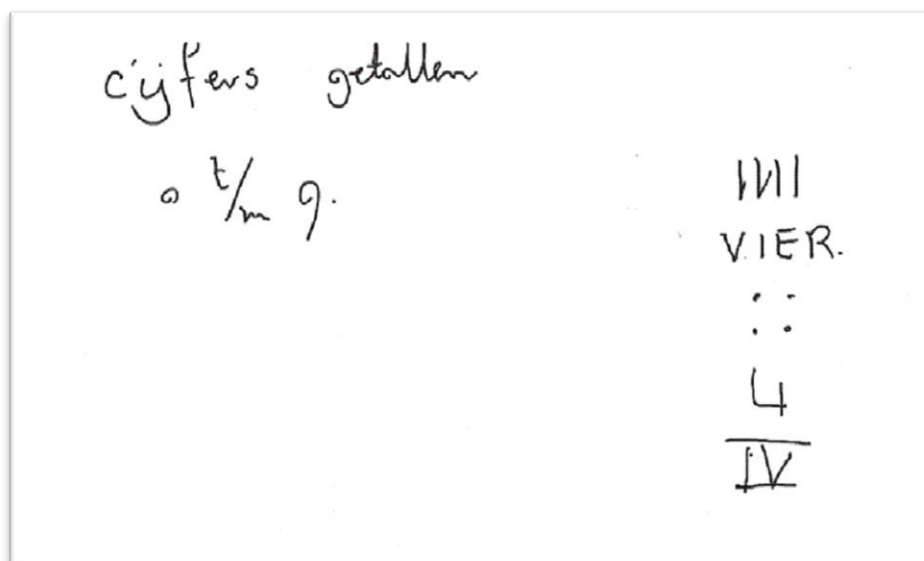 cijfers getallen
0 t/m 9.
||||
VIER.
4
IV